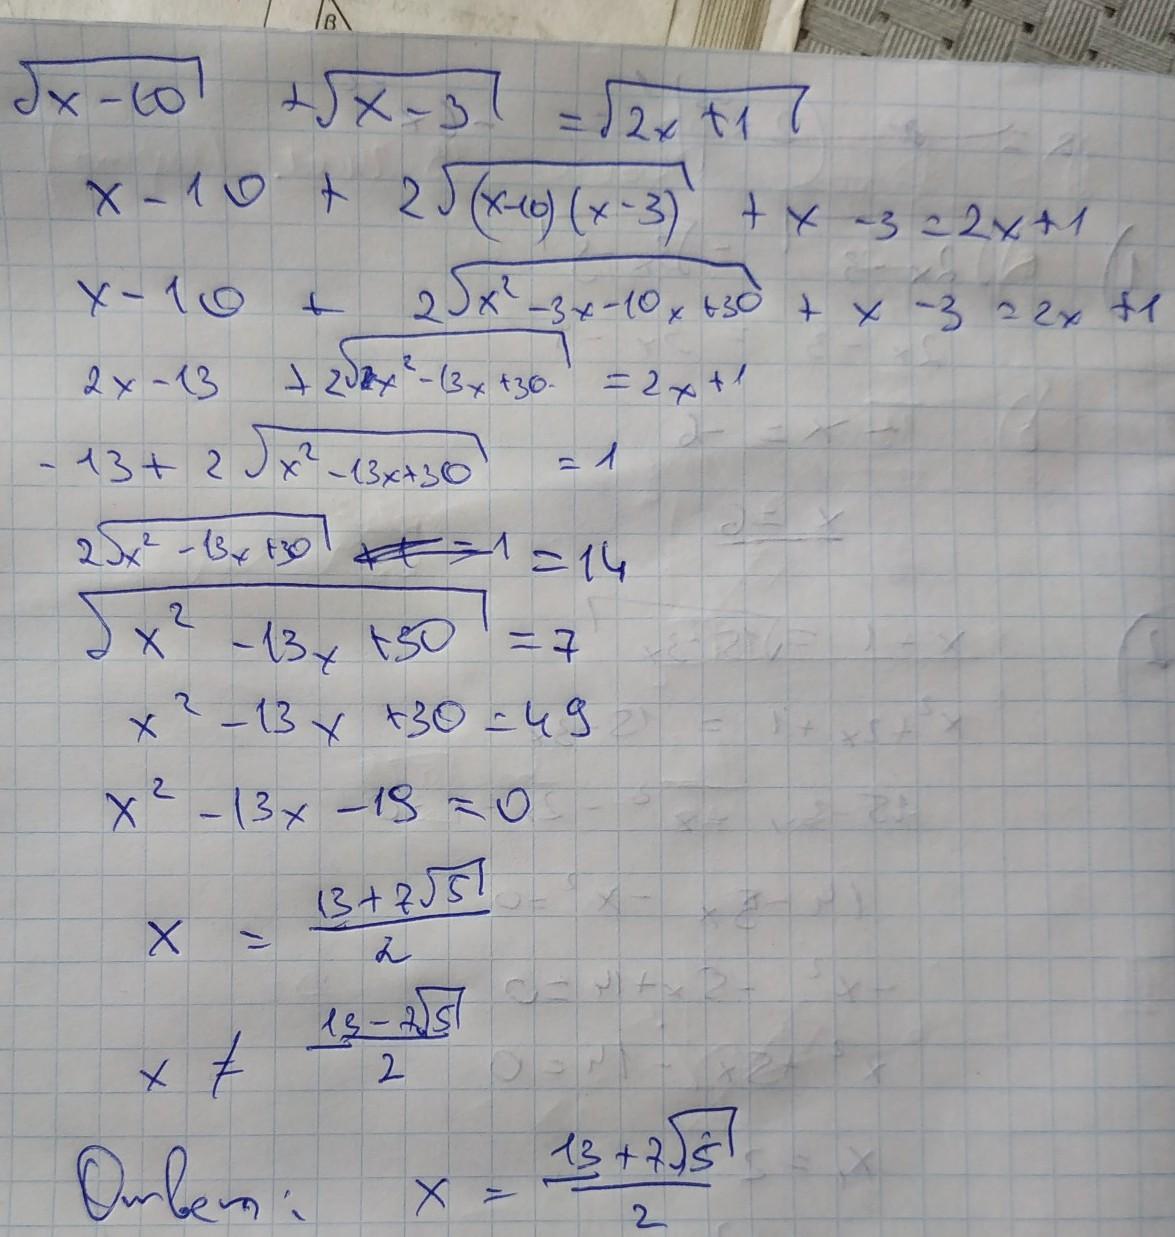 В
√(x-10) + √(x-3) = √(2x+1)
x-10 + 2√((x-10)(x-3)) + x-3 = 2x+1
x-10 + 2√(x²-3x-10x+30) + x-3 = 2x+1
2x-13 + 2√(x²-13x+30) = 2x+1
-13 + 2√(x²-13x+30) = 1
2√(x²-13x+30) = 14
√(x²-13x+30) = 7
x²-13x+30 = 49
x²-13x-19 = 0
x = (13+7√5)/2
x ≠ (13-7√5)/2
Ответ: x = (13+7√5)/2